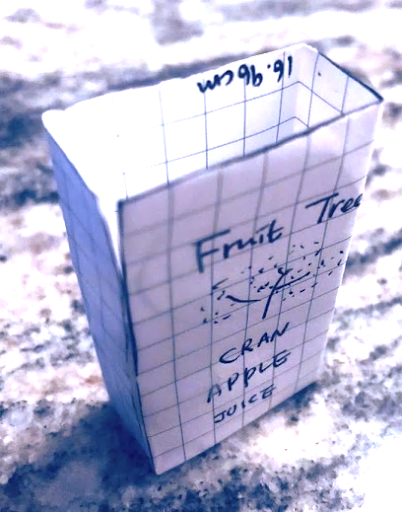 16.96 cm
Fruit Tree
CRAN
APPLE
JUICE